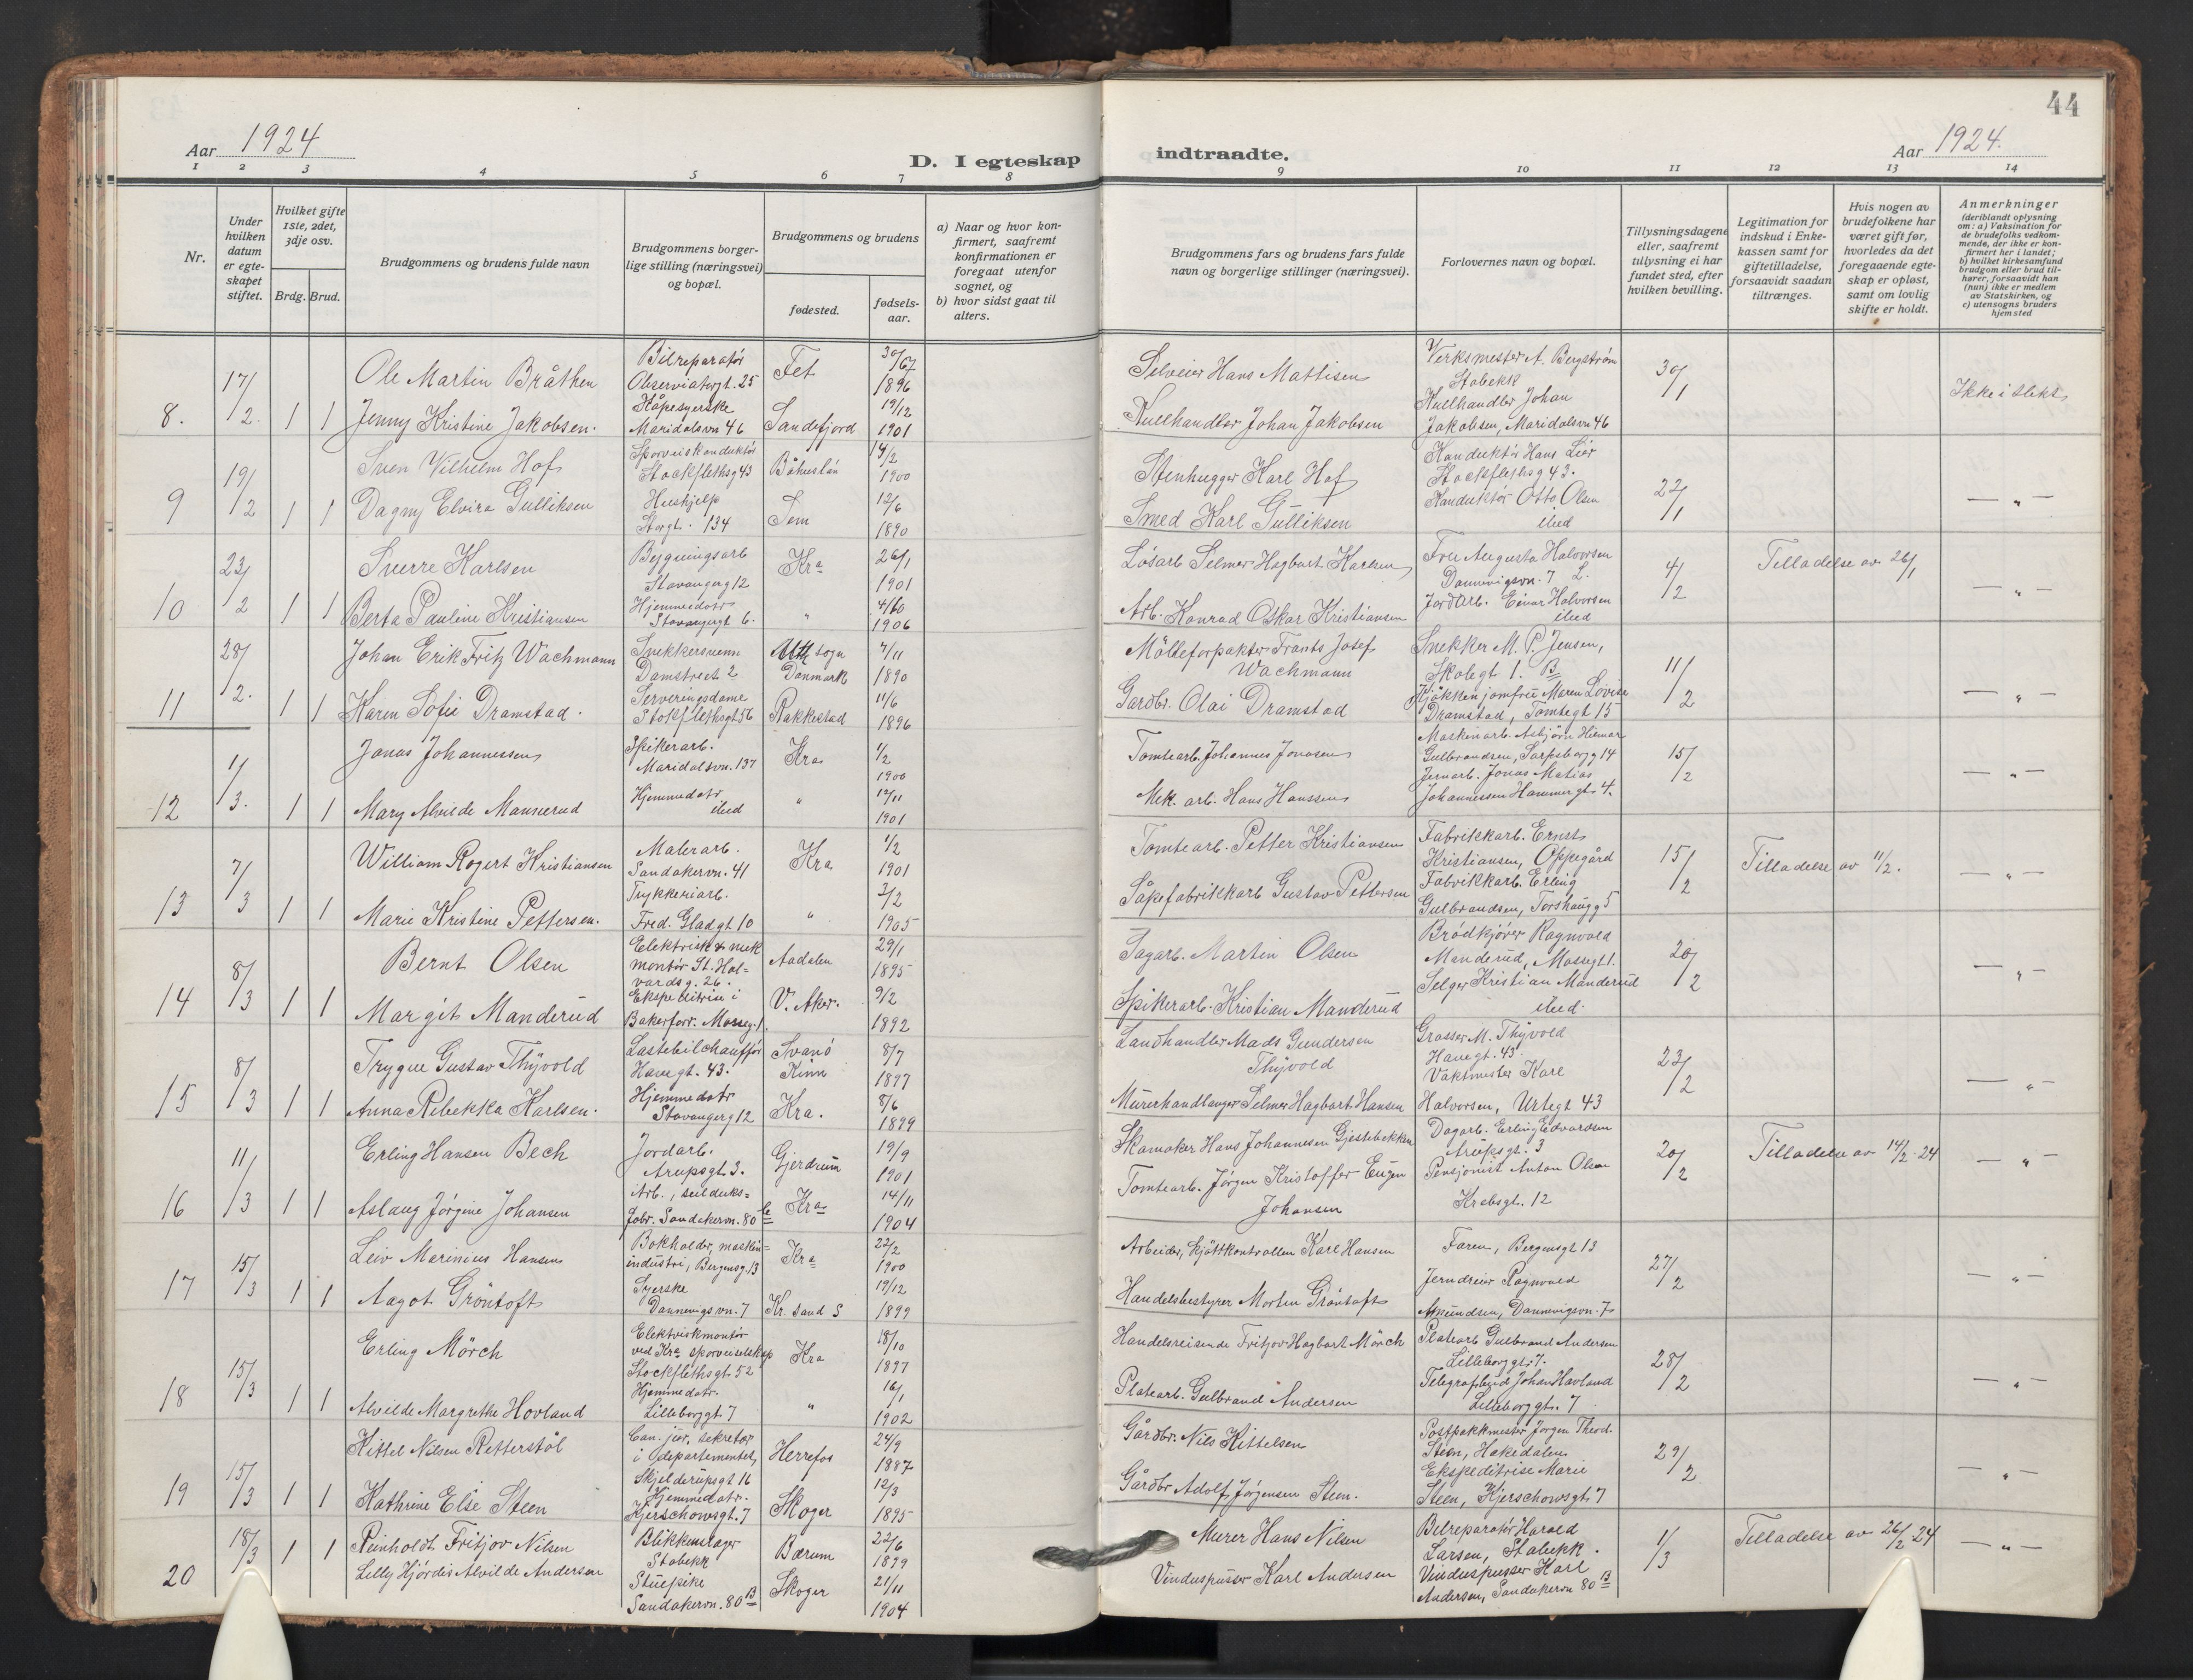 44
Aar 1924
D. I egteskap indtraadte.
Aar 1924.
1 2 3 4 5 6 7 8 9 10 11 12 13 14
Nr.
Under hvilken datum er egteskapet stiftet.
Hvilket gifte 1ste, 2det, 3dje osv.
Brdg. Brud.
Brudgommens og brudens fulde navn
Brudgommens borgerlige stilling (næringsvei) og bopæl.
Brudgommens og brudens
fødested.
fødselsaar.
a) Naar og hvor konfirmert, saafremt konfirmationen er foregaat utenfor sognet, og
b) hvor sidst gaat til alters.
Brudgommens fars og brudens fars fulde navn og borgerlige stillinger (næringsvei).
Forlovernes navn og bopæl.
Tillysningsdagene eller, saafremt tillysning ei har fundet sted, efter hvilken bevilling.
Legitimation for indskud i Enkekassen samt for giftetilladelse, forsaavidt saadan tiltrænges.
Hvis nogen av brudefolkene har været gift før, hvorledes da det foregaaende egteskap er opløst, samt om lovlig skifte er holdt.
Anmerkninger
(deriblandt oplysning om: a) Vaksination for de brudefolks vedkommende, der ikke er konfirmert her i landet; b) hvilket kirkesamfund brudgom eller brud tilhører, forsaavidt han (hun) ikke er medlem av Statskirken, og c) utensogns bruders hjemsted
8. 17/2. 1 1
Ole Martin Bråthen
Bilreparatör Observatorgt. 25
Fet
1896
Hans Mattisen
Verksmester A. Bergström Stabekk
30/1
Ikke i slekt
Jenny Kristine Jakobsen.
Kåpesyerske Maridalsvn 46
Sandefjord
19/12 1901
Kullhandler Johan Jakobsen
Kullhandler Johan Jakobsen, Maridalsvn 46
9 19/2 1 1
Sven Vilhelm Hof
Sporveiskonduktör Stockflethsg 43
Båhuslän
14/2 1900
Stenhugger Karl Hof
Konduktör Hans Lier Stockflethsg 43.
22/1
— „ —
Dagny Elvira Gulliksen
Hushjelp Storgt. 134
Sem
12/6 1890
Smed Karl Gulliksen
Konduktör Otto Olsen ibid
10 23/2 1 1
Sverre Karlsen
Bygningsarb Stavangerg 12
Kra
26/1 1901
Løsarb Selmer Hagbart Karlsen
Fru Augusta Halvorsen Dannevigsvn. 7 L.
4/2
Tilladelse av 26/1
— „ —
Berta Pauline Kristiansen
Hjemmedatr Stavangergt 6.
„
4/10 1906
Arb. Konrad Oskar Kristiansen
Jordarb. Einar Halvorsen ibid
11 28/2. 1 1
Johan Erik Fritz Wachmann
Snekkersvenn Damstredt 2
sogn Danmark
7/11 1890
Mölleforpakter Frants Josef Wachmann
Snekker M. P. Jensen, Skolegt 1. B
11/2
— „ —
Karen Sofie Dramstad.
Serveringsdame Stokflethsgt 56
Rakkestad
11/6 1896
Gardbr. Olai Dramstad
Kjøkkenjomfru Maren Lovise Dramstad, Tomtegt 15
12 1/3. 1 1
Jonas Johannessen
Spikerarb. Maridalsvn. 137
Kra
1/2 1900
Tomtearb. Johannes Jonasen
Maskinarb. Asbjörn Hilmar Gulbrandsen, Sarpsborgg 14
15/2
— „ —
Mary Alvilde Mannerud
Hjemmedatr ibid
„
12/11 1901
Mek. arb. Hans Hanssen
Jernarb. Jonas Matias Johannessen Hammergt 4.
13 7/3 1 1
William Rogert Kristiansen
Malerarb. Sandakervn. 41
Kra
1/2 1901
Tomtearb. Petter Kristiansen
Fabrikkarb. Ernst Kristiansen, Oppegård
15/2
Tilladelse av 11/2.
— „ —
Marie Kristine Pettersen.
Trykkeriarb. Fred. Gladgt 10
„
3/2 1905
Såpefabrikkarb Gustav Pettersen
Fabrikkarb. Erling Gulbrandsen, Torshaugg 5
14 8/3 1 1
Bernt Olsen
Elektrisk & mek montör St. Halvardsg. 26.
Aadalen
29/1 1895
Sagarb. Martin Olsen
Brödkjörer Ragnvald Manderud, Mossegt 1.
20/2
— „ —
Margit Manderud
Ekspeditrise i Bakerforr. Mosseg. 1.
V. Aker.
9/2 1892
Spikerarb. Kristian Manderud
Selger Kristian Manderud ibid.
15 8/3 1 1
Trygve Gustav Thyvold
Lastebilchaufför Havegt. 43.
Svanö Kinn
8/7 1897
Landhandler Mads Gundersen Thyvold
Grosser M. Thyvold Havegt. 43.
23/2
— „ —
Anna Rebekka Karlsen.
Hjemmedatr Stavangerg 12
Kra.
8/6 1899
Murerhandlanger Selmer Hagbart Hansen
Vaktmester Karl Halvorsen, Urtegt 43
16 11/3 1 1
Erling Hansen Bech
Jordarb. Arupsgt 3.
Gjerdrum
19/9 1901
Skomaker Hans Johannesen Gjestebekken
Dagarb. Erling Edvardsen Arupsgt. 3
20/2
Tilladelse av 14/2 - 24
— „ —
Aslaug Jörgine Johansen
Arb., seilduksfabr. Sandakervn. 80
Kra
14/11 1904
Tomtearb. Jörgen Kristoffer Eugen Johansen
Pensjonist Anton Olsen Krebsgt. 12
17 15/3 1 1
Leiv Marinius Hansen
Bokholder, maskinindustri, Bergensg. 13
Kra
22/2 1900
Arbeider, kjöttkontrollen Karl Hansen
Faren, Bergensgt 13
27/2
— „ —
Aagot Gröntoft
Syerske Dannevigsvn. 7
Kr. sand S
19/12 1899
Handelsbestyrer Morten Gröntoft
Jerndreier Ragnvald Amundsen, Dannevigsvn. 7
18 15/3 1 1
Erling Mörch
Elektriskmontör ved Kra sporveiselskap Stockflethsgt 52
Kra
18/10 1897
Handelsreisende Fritjov Hagbart Mörch
Platearb Gulbrand Andersen Lilleborggt. 7.
28/2
— „ —
Alvilde Margrethe Hovland
Hjemmedatr. Lilleborggt 7
„
16/1 1902
Platearb. Gulbrand Andersen
Telegrafbud Johan Havland Lilleborggt. 7
19 15/3 1 1
Kittel Nilsen Retterstöl
Can. jur, sekretær i Odepartementet, Skjelderupsgt 16
Herrefos
24/9 1887
Gårdbr. Nils Kittelsen
Postpakkmester Jörgen Theod. Steen, Hakedalen
29/2
— „ —
Kathrine Else Steen
Hjemmedatr. Kjerschowsgt. 7
Skoger
12/3 1895
Gårdbr Adolf Jörgensen Steen.
Ekspeditrise Marie Steen, Kjerschowsgt 7
20 18/3 1 1
Reinholdt Fritjov Nilsen
Blikkenslager Stabekk
Bærum
22/6 1899
Murer Hans Nilsen
Bilreparatör Harald Larsen, Stabekk.
1/3
Tilladelse av 26/2 24
— „ —
Lilly Hjördis Alvilde Andersen
Stuepike Sandakervn. 80 B
Skoger
21/11 1904
Vinduspusser Karl Andersen
Vinduspusser Karl Andersen, Sandakervn 80 B